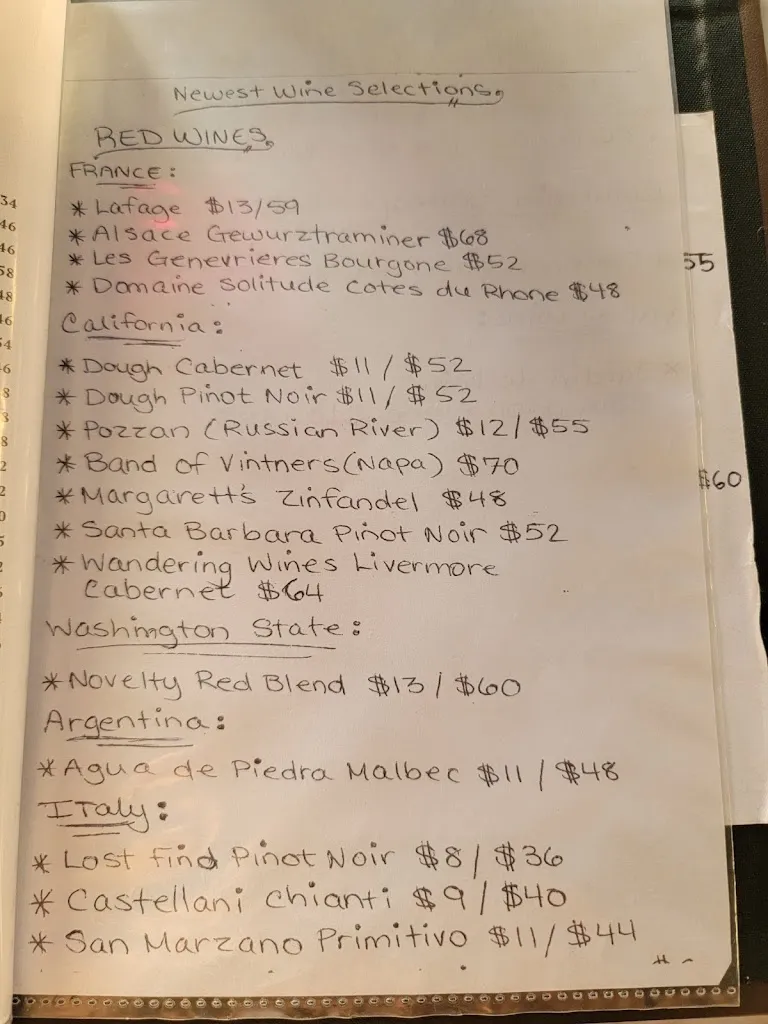 Newest Wine Selections
RED WINES
FRANCE:
* Lafage $13/59
* Alsace Gewurztraminer $68
* Les Genevrieres Bourgone $52
* Domaine Solitude Cotes du Rhone $48
California:
* Dough Cabernet $11 / $52
* Dough Pinot Noir $11 / $52
* Pozzan (Russian River) $12 / $55
* Band of Vintners (Napa) $70
* Margarett's Zinfandel $48
* Santa Barbara Pinot Noir $52
* Wandering Wines Livermore
Cabernet $64
Washington State:
* Novelty Red Blend $13 / $60
Argentina:
* Agua de Piedra Malbec $11 / $48
ITaly:
* Lost find Pinot Noir $8 / $36
* Castellani Chianti $9 / $40
* San Marzano Primitivo $11 / $44
34
46
46
58
48
55
$60